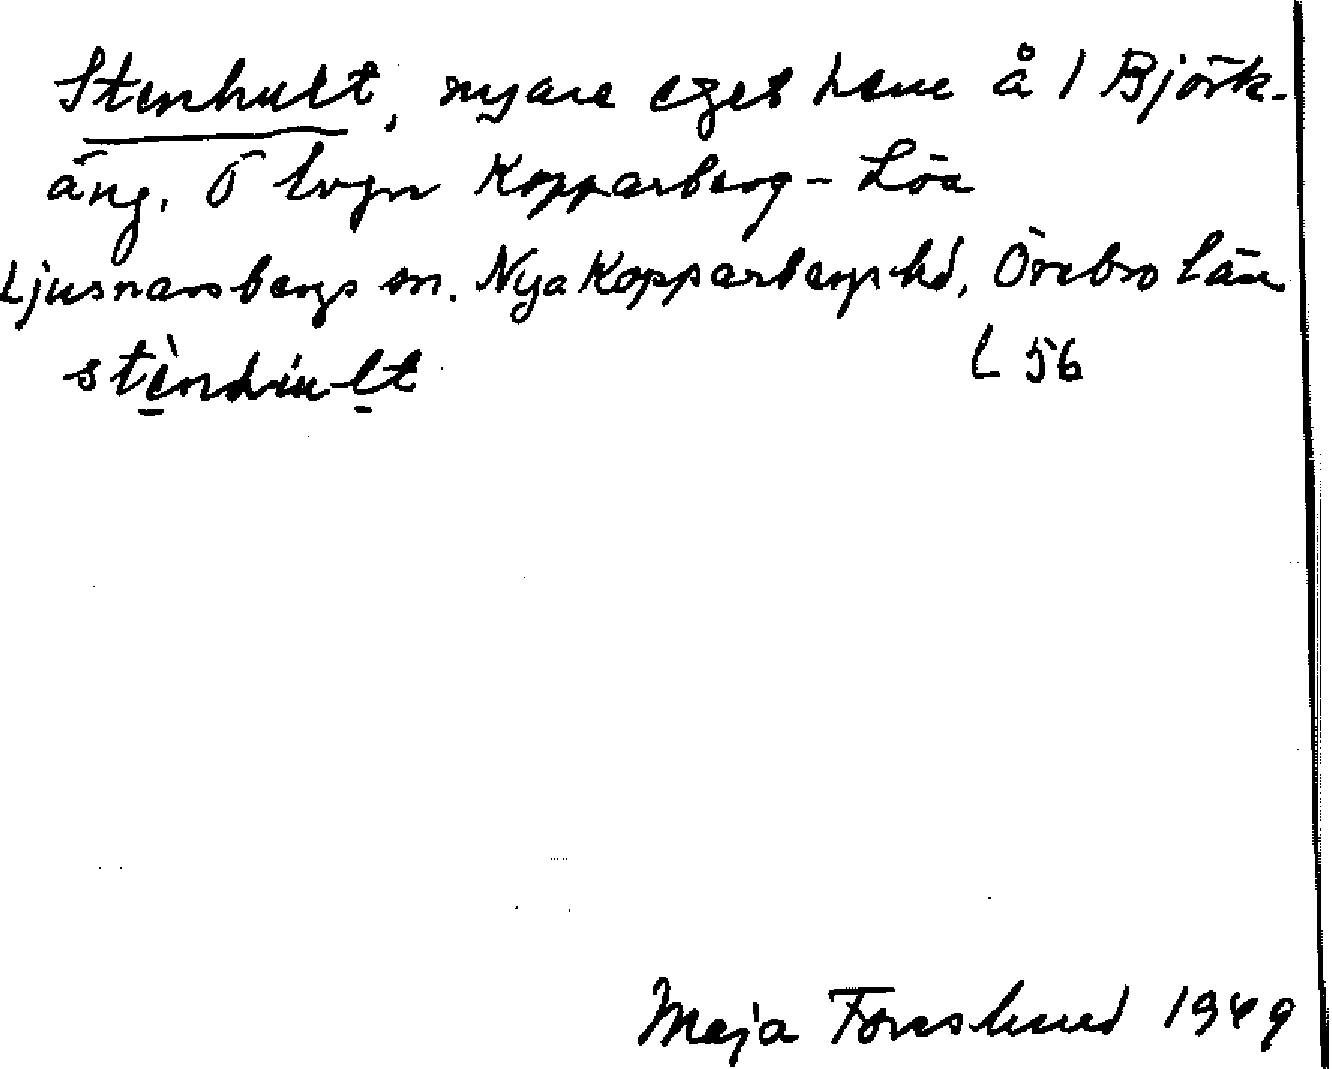 Stenhult, nyare eget hem å 1 Björk-
äng. Ö lvgn Kopparberg - Löa
Ljusnarsbergs sn. Nya Kopparbergs hd, Örebro län
L 56
Maja Forsslund 1949